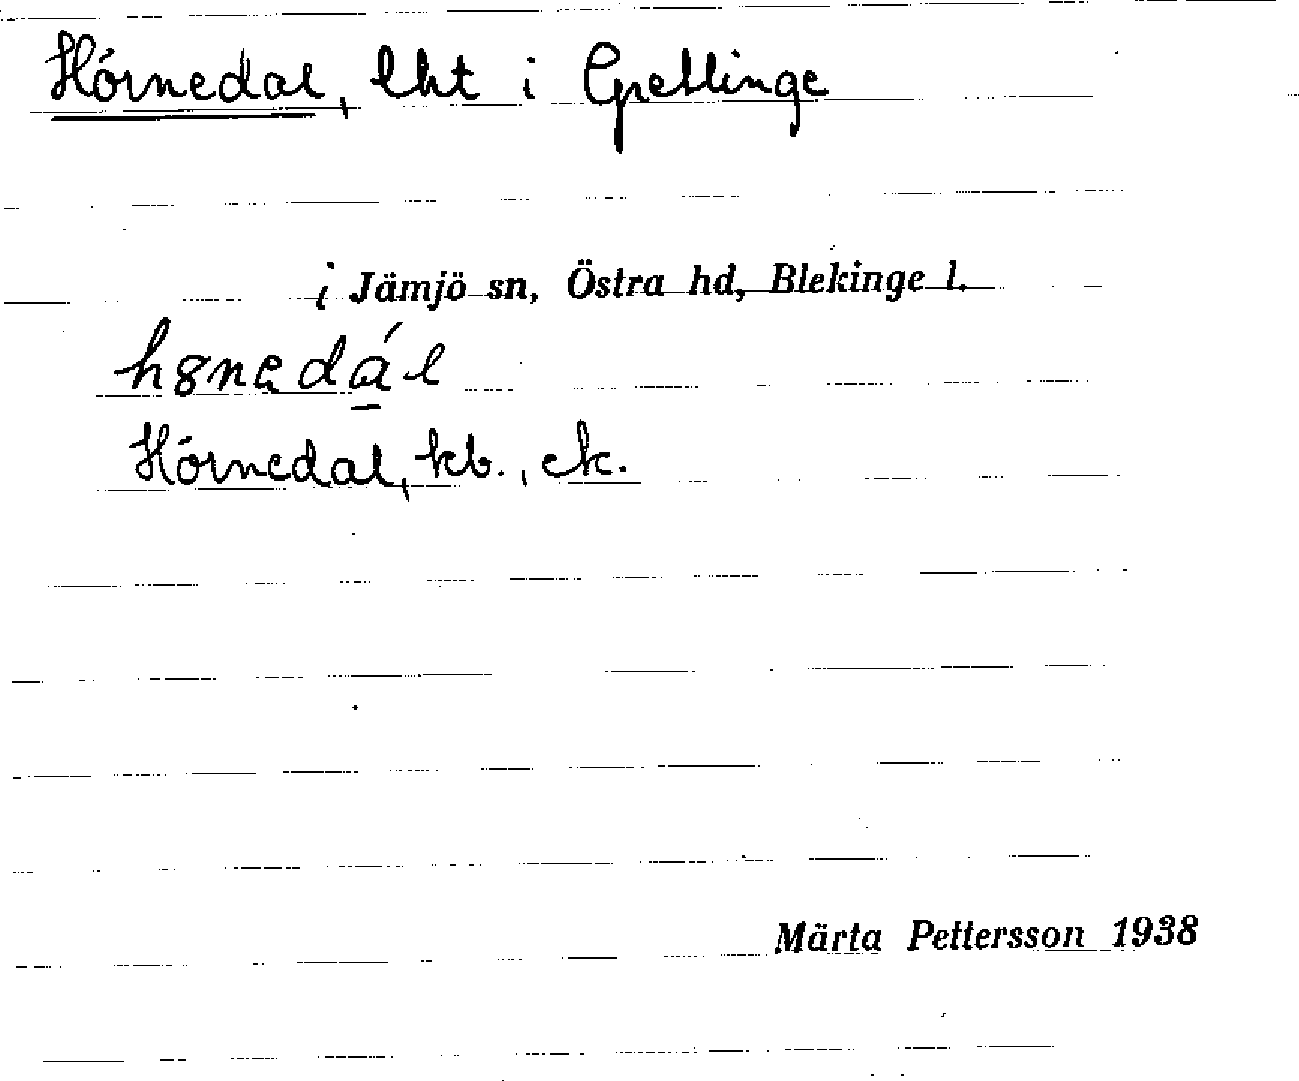 Hörnedal, lht i Grellinge
i Jämjö sn, Östra hd, Blekinge l.
Hörnedal, kb., ek.
Märta Pettersson 1938